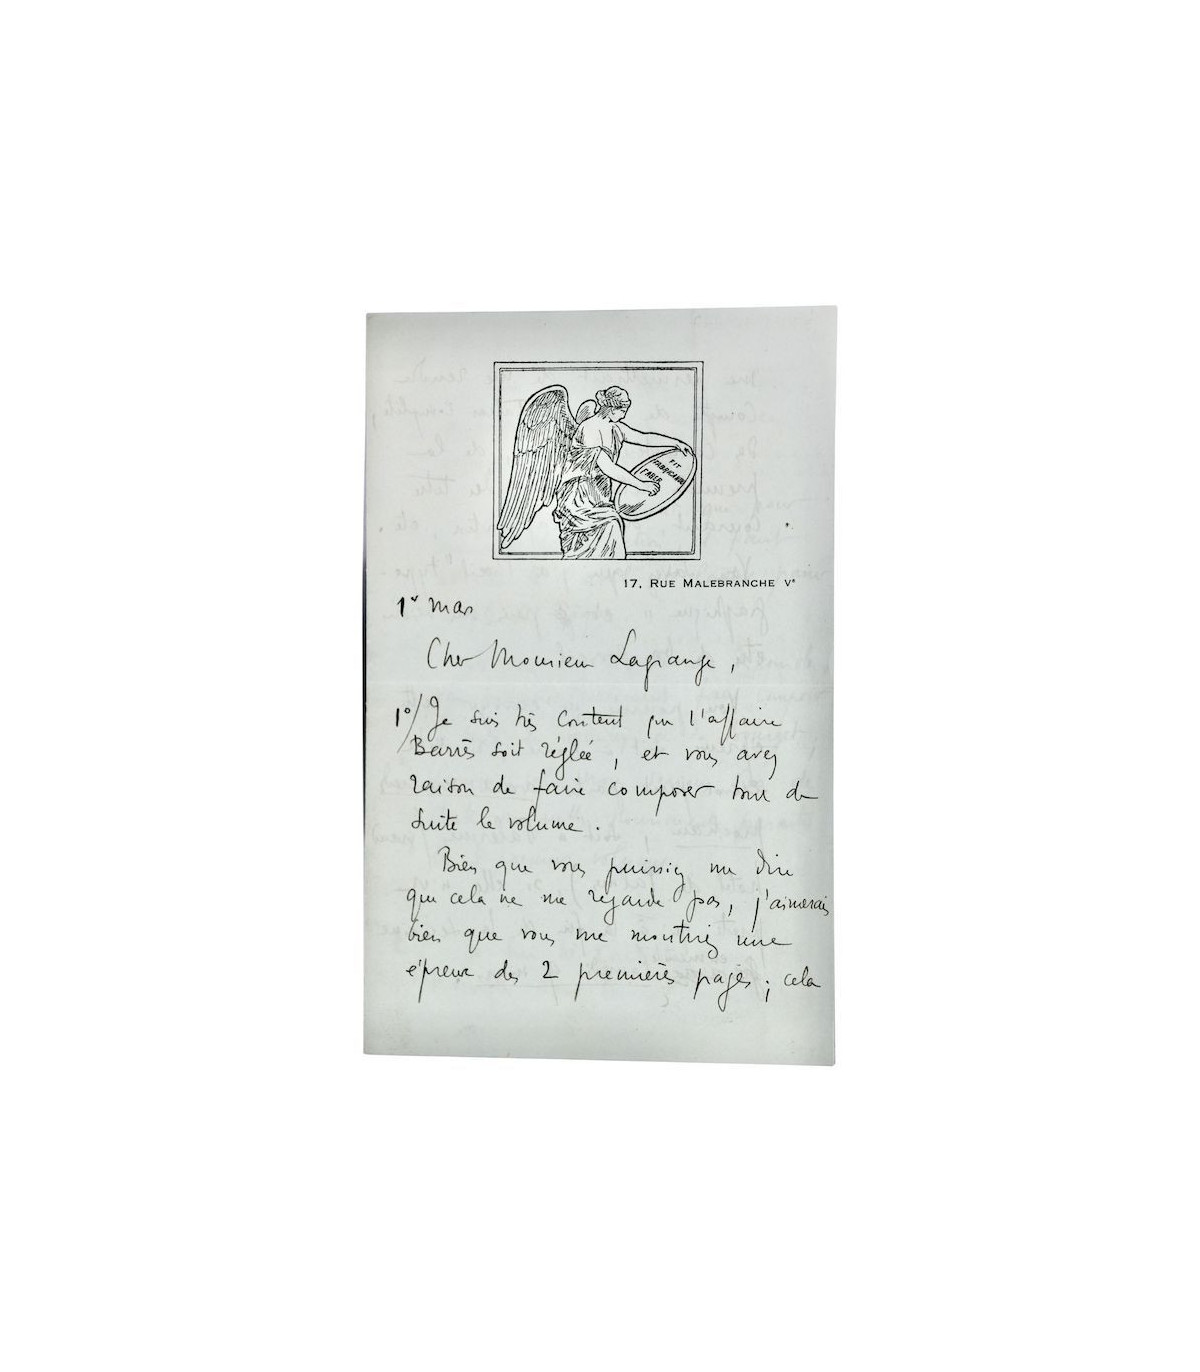 FIT
FABRICANDO
FABER
17, RUE MALEBRANCHE Ve
1er mars
Cher Monsieur Lagrange,
1°/ Je suis très content que l'affaire
Barrès soit réglée, et vous avez
raison de faire composer tout de
suite le volume.
Bien que vous puissiez me dire
que cela ne me regarde pas, j'aimerais
bien que vous me montriez une
épreuve des 2 premières pages ; cela